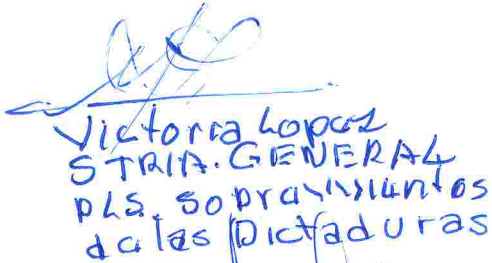 Victoria Lopez
STRIA. GENERAL
pls. sopravivientos
da las Dictaduras